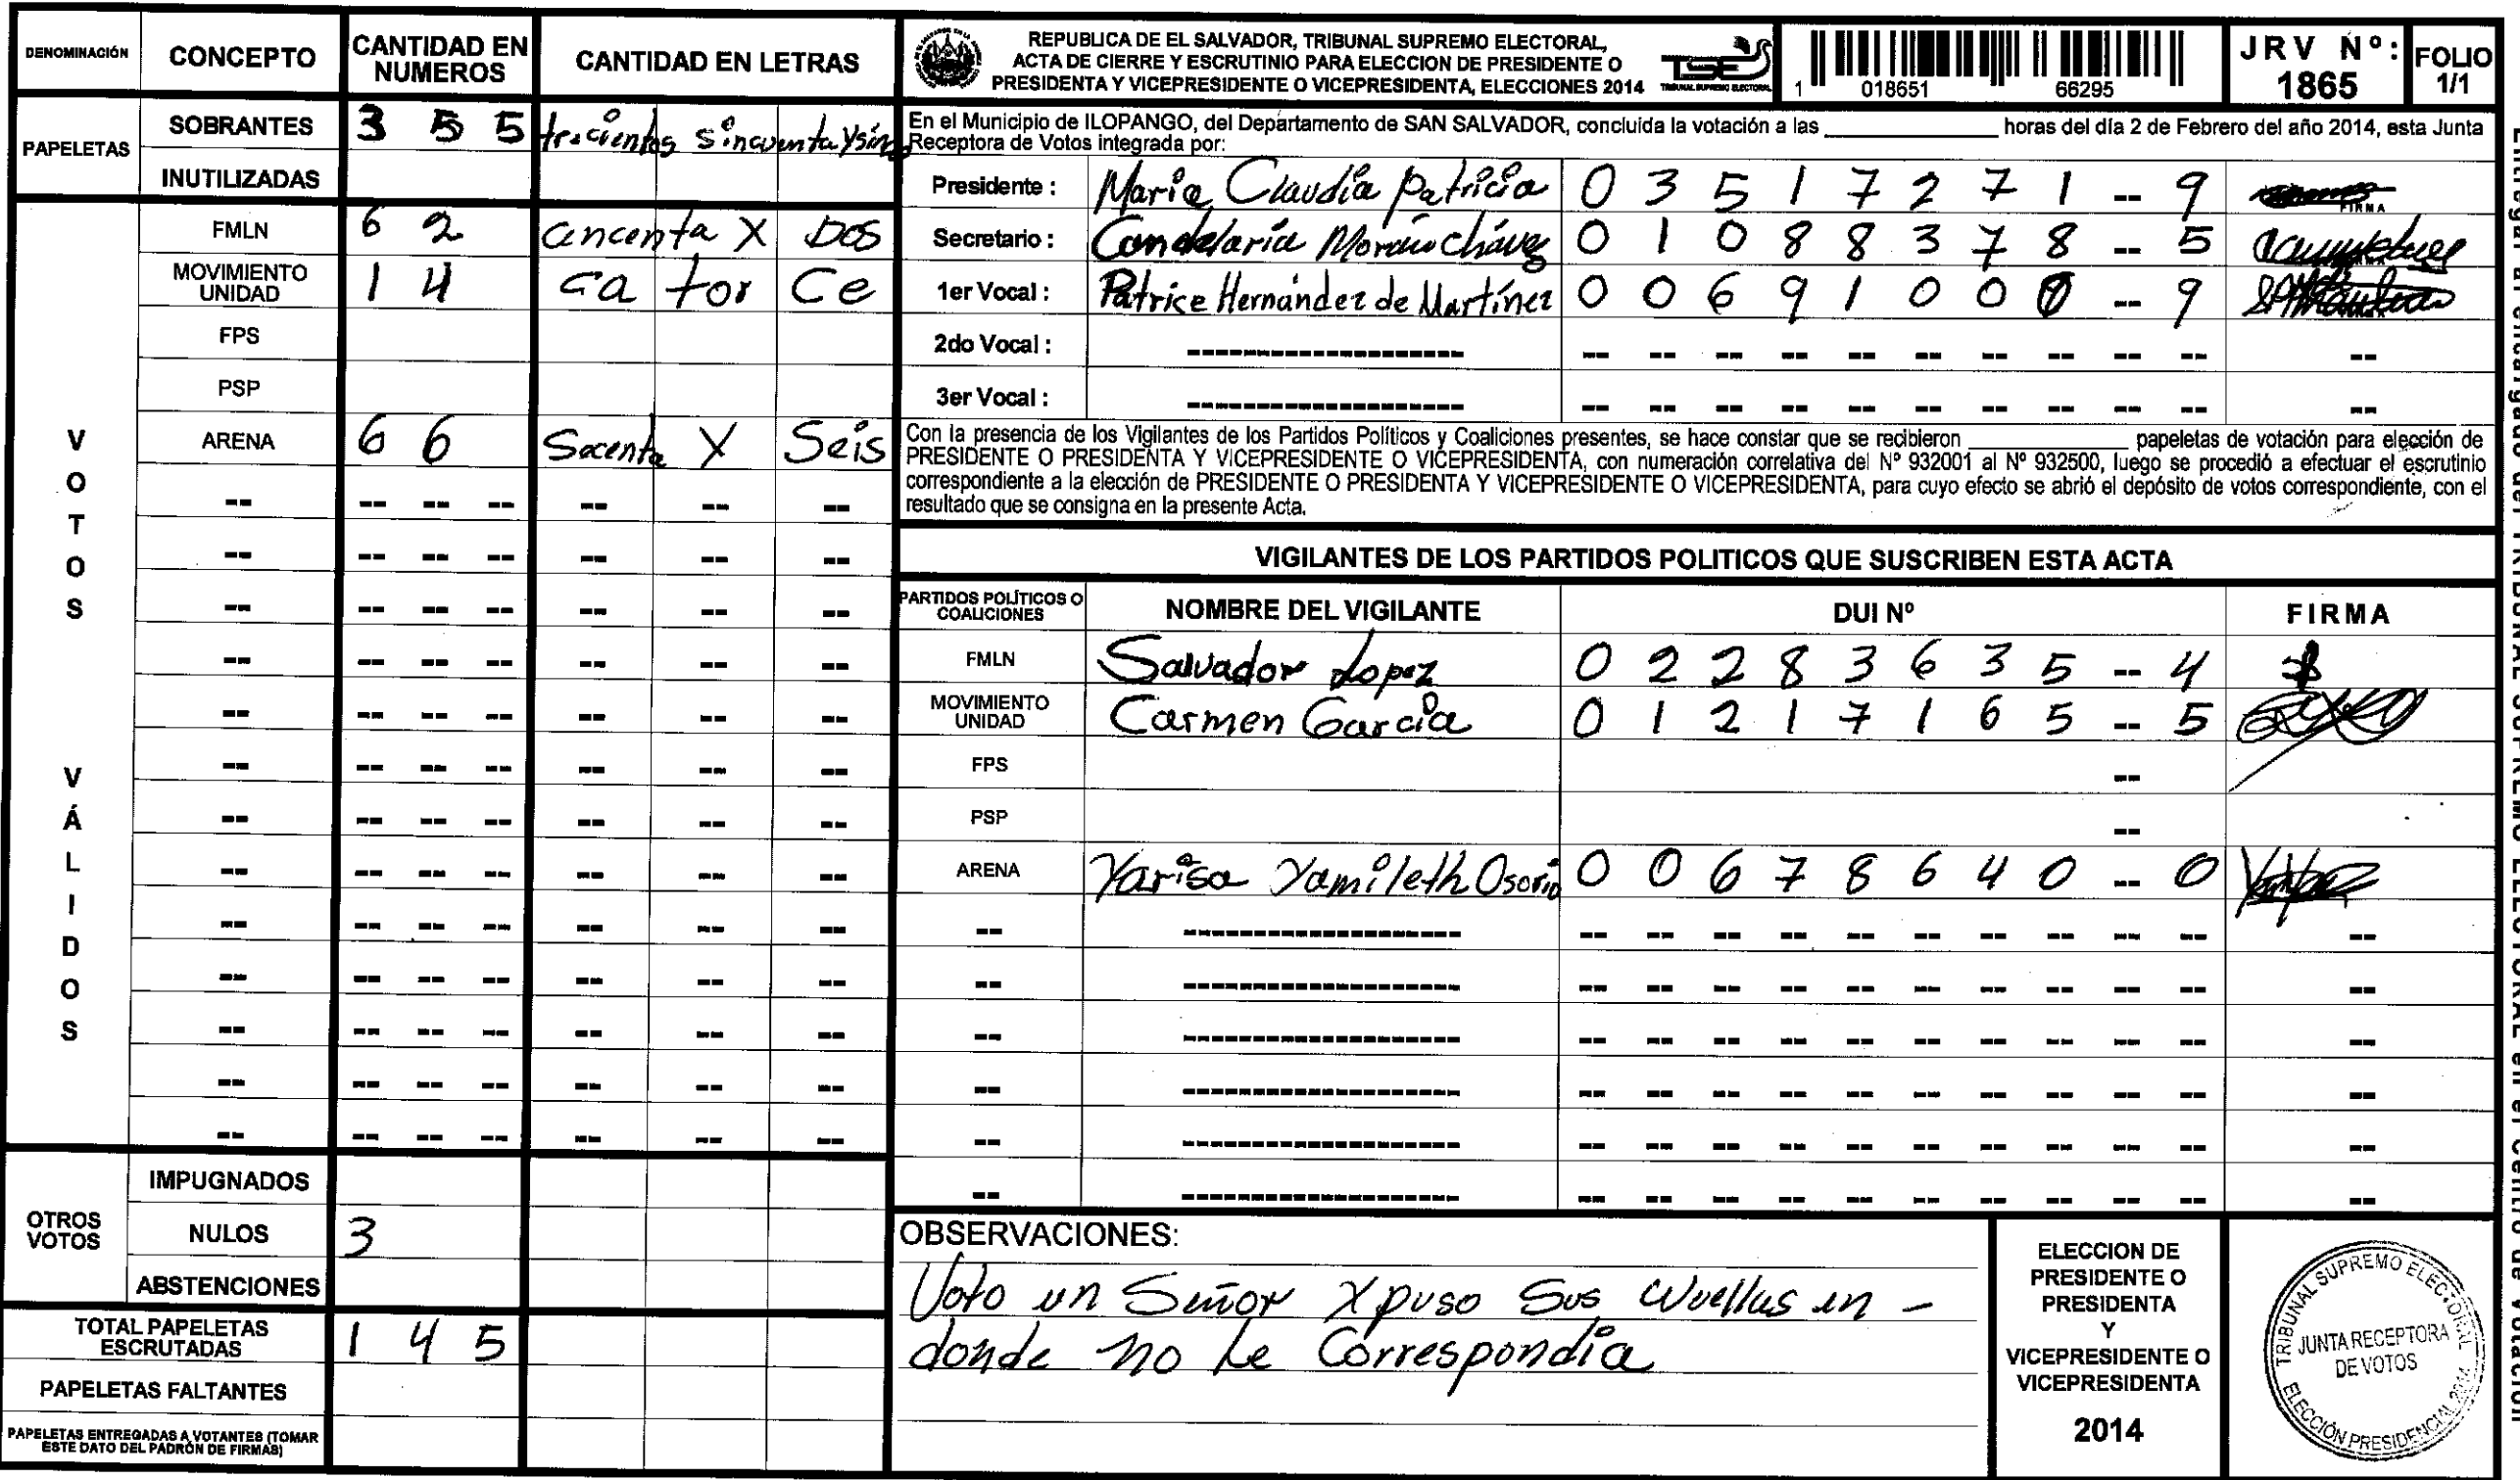 DENOMINACIÓN CONCEPTO CANTIDAD EN NUMEROS CANTIDAD EN LETRAS
PAPELETAS
SOBRANTES 3 5 5 trecientos sincuenta y sin
INUTILIZADAS
VOTOS VÁLIDOS
FMLN 6 2 cencenta Y Dos
MOVIMIENTO UNIDAD 1 4 Ca tor Ce
FPS
PSP
ARENA 6 6 Socenta Y Seis
-- -- -- -- -- -- --
-- -- -- -- -- -- --
-- -- -- -- -- -- --
-- -- -- -- -- -- --
-- -- -- -- -- -- --
-- -- -- -- -- -- --
-- -- -- -- -- -- --
-- -- -- -- -- -- --
-- -- -- -- -- -- --
-- -- -- -- -- -- --
-- -- -- -- -- -- --
-- -- -- -- -- -- --
-- -- -- -- -- -- --
OTROS VOTOS
IMPUGNADOS
NULOS 3
ABSTENCIONES
TOTAL PAPELETAS ESCRUTADAS 1 4 5
PAPELETAS FALTANTES
PAPELETAS ENTREGADAS A VOTANTES (TOMAR ESTE DATO DEL PADRÓN DE FIRMAS)
REPUBLICA DE EL SALVADOR, TRIBUNAL SUPREMO ELECTORAL,
ACTA DE CIERRE Y ESCRUTINIO PARA ELECCION DE PRESIDENTE O
PRESIDENTA Y VICEPRESIDENTE O VICEPRESIDENTA, ELECCIONES 2014
TSE
TRIBUNAL SUPREMO ELECTORAL
1 018651 66295
JRV Nº: 1865
FOLIO 1/1
En el Municipio de ILOPANGO, del Departamento de SAN SALVADOR, concluida la votación a las ____________ horas del día 2 de Febrero del año 2014, esta Junta
Receptora de Votos integrada por:
Presidente : Maria Claudia Patricia 0 3 5 1 7 2 7 1 -- 9 FIRMA
Secretario : Candelaria Morán Chávez 0 1 0 8 8 3 7 8 -- 5
1er Vocal : Patrice Hernández de Martínez 0 0 6 9 1 0 0 0 -- 9
2do Vocal : -------------------- -- -- -- -- -- -- -- -- -- -- --
3er Vocal : -------------------- -- -- -- -- -- -- -- -- -- -- --
Con la presencia de los Vigilantes de los Partidos Políticos y Coaliciones presentes, se hace constar que se recibieron ____________ papeletas de votación para elección de
PRESIDENTE O PRESIDENTA Y VICEPRESIDENTE O VICEPRESIDENTA, con numeración correlativa del Nº 932001 al Nº 932500, luego se procedió a efectuar el escrutinio
correspondiente a la elección de PRESIDENTE O PRESIDENTA Y VICEPRESIDENTE O VICEPRESIDENTA, para cuyo efecto se abrió el depósito de votos correspondiente, con el
resultado que se consigna en la presente Acta.
VIGILANTES DE LOS PARTIDOS POLITICOS QUE SUSCRIBEN ESTA ACTA
PARTIDOS POLÍTICOS O COALICIONES NOMBRE DEL VIGILANTE DUI Nº FIRMA
FMLN Salvador Lopez 0 2 2 8 3 6 3 5 -- 4
MOVIMIENTO UNIDAD Carmen García 0 1 2 1 7 1 6 5 -- 5
FPS --
PSP --
ARENA Yarisa Yamileth Osorio 0 0 6 7 8 6 4 0 -- 0
-- -------------------- -- -- -- -- -- -- -- -- -- -- --
-- -------------------- -- -- -- -- -- -- -- -- -- -- --
-- -------------------- -- -- -- -- -- -- -- -- -- -- --
-- -------------------- -- -- -- -- -- -- -- -- -- -- --
-- -------------------- -- -- -- -- -- -- -- -- -- -- --
-- -------------------- -- -- -- -- -- -- -- -- -- -- --
OBSERVACIONES:
Voto un Señor Y puso Sus Wuellas en -
donde no le Correspondía
ELECCION DE
PRESIDENTE O
PRESIDENTA
Y
VICEPRESIDENTE O
VICEPRESIDENTA
2014
TRIBUNAL SUPREMO ELECTORAL
JUNTA RECEPTORA
DE VOTOS
ELECCIÓN PRESIDENCIAL 2014
Entregar al encargado del TRIBUNAL SUPREMO ELECTORAL en el Centro de Votación